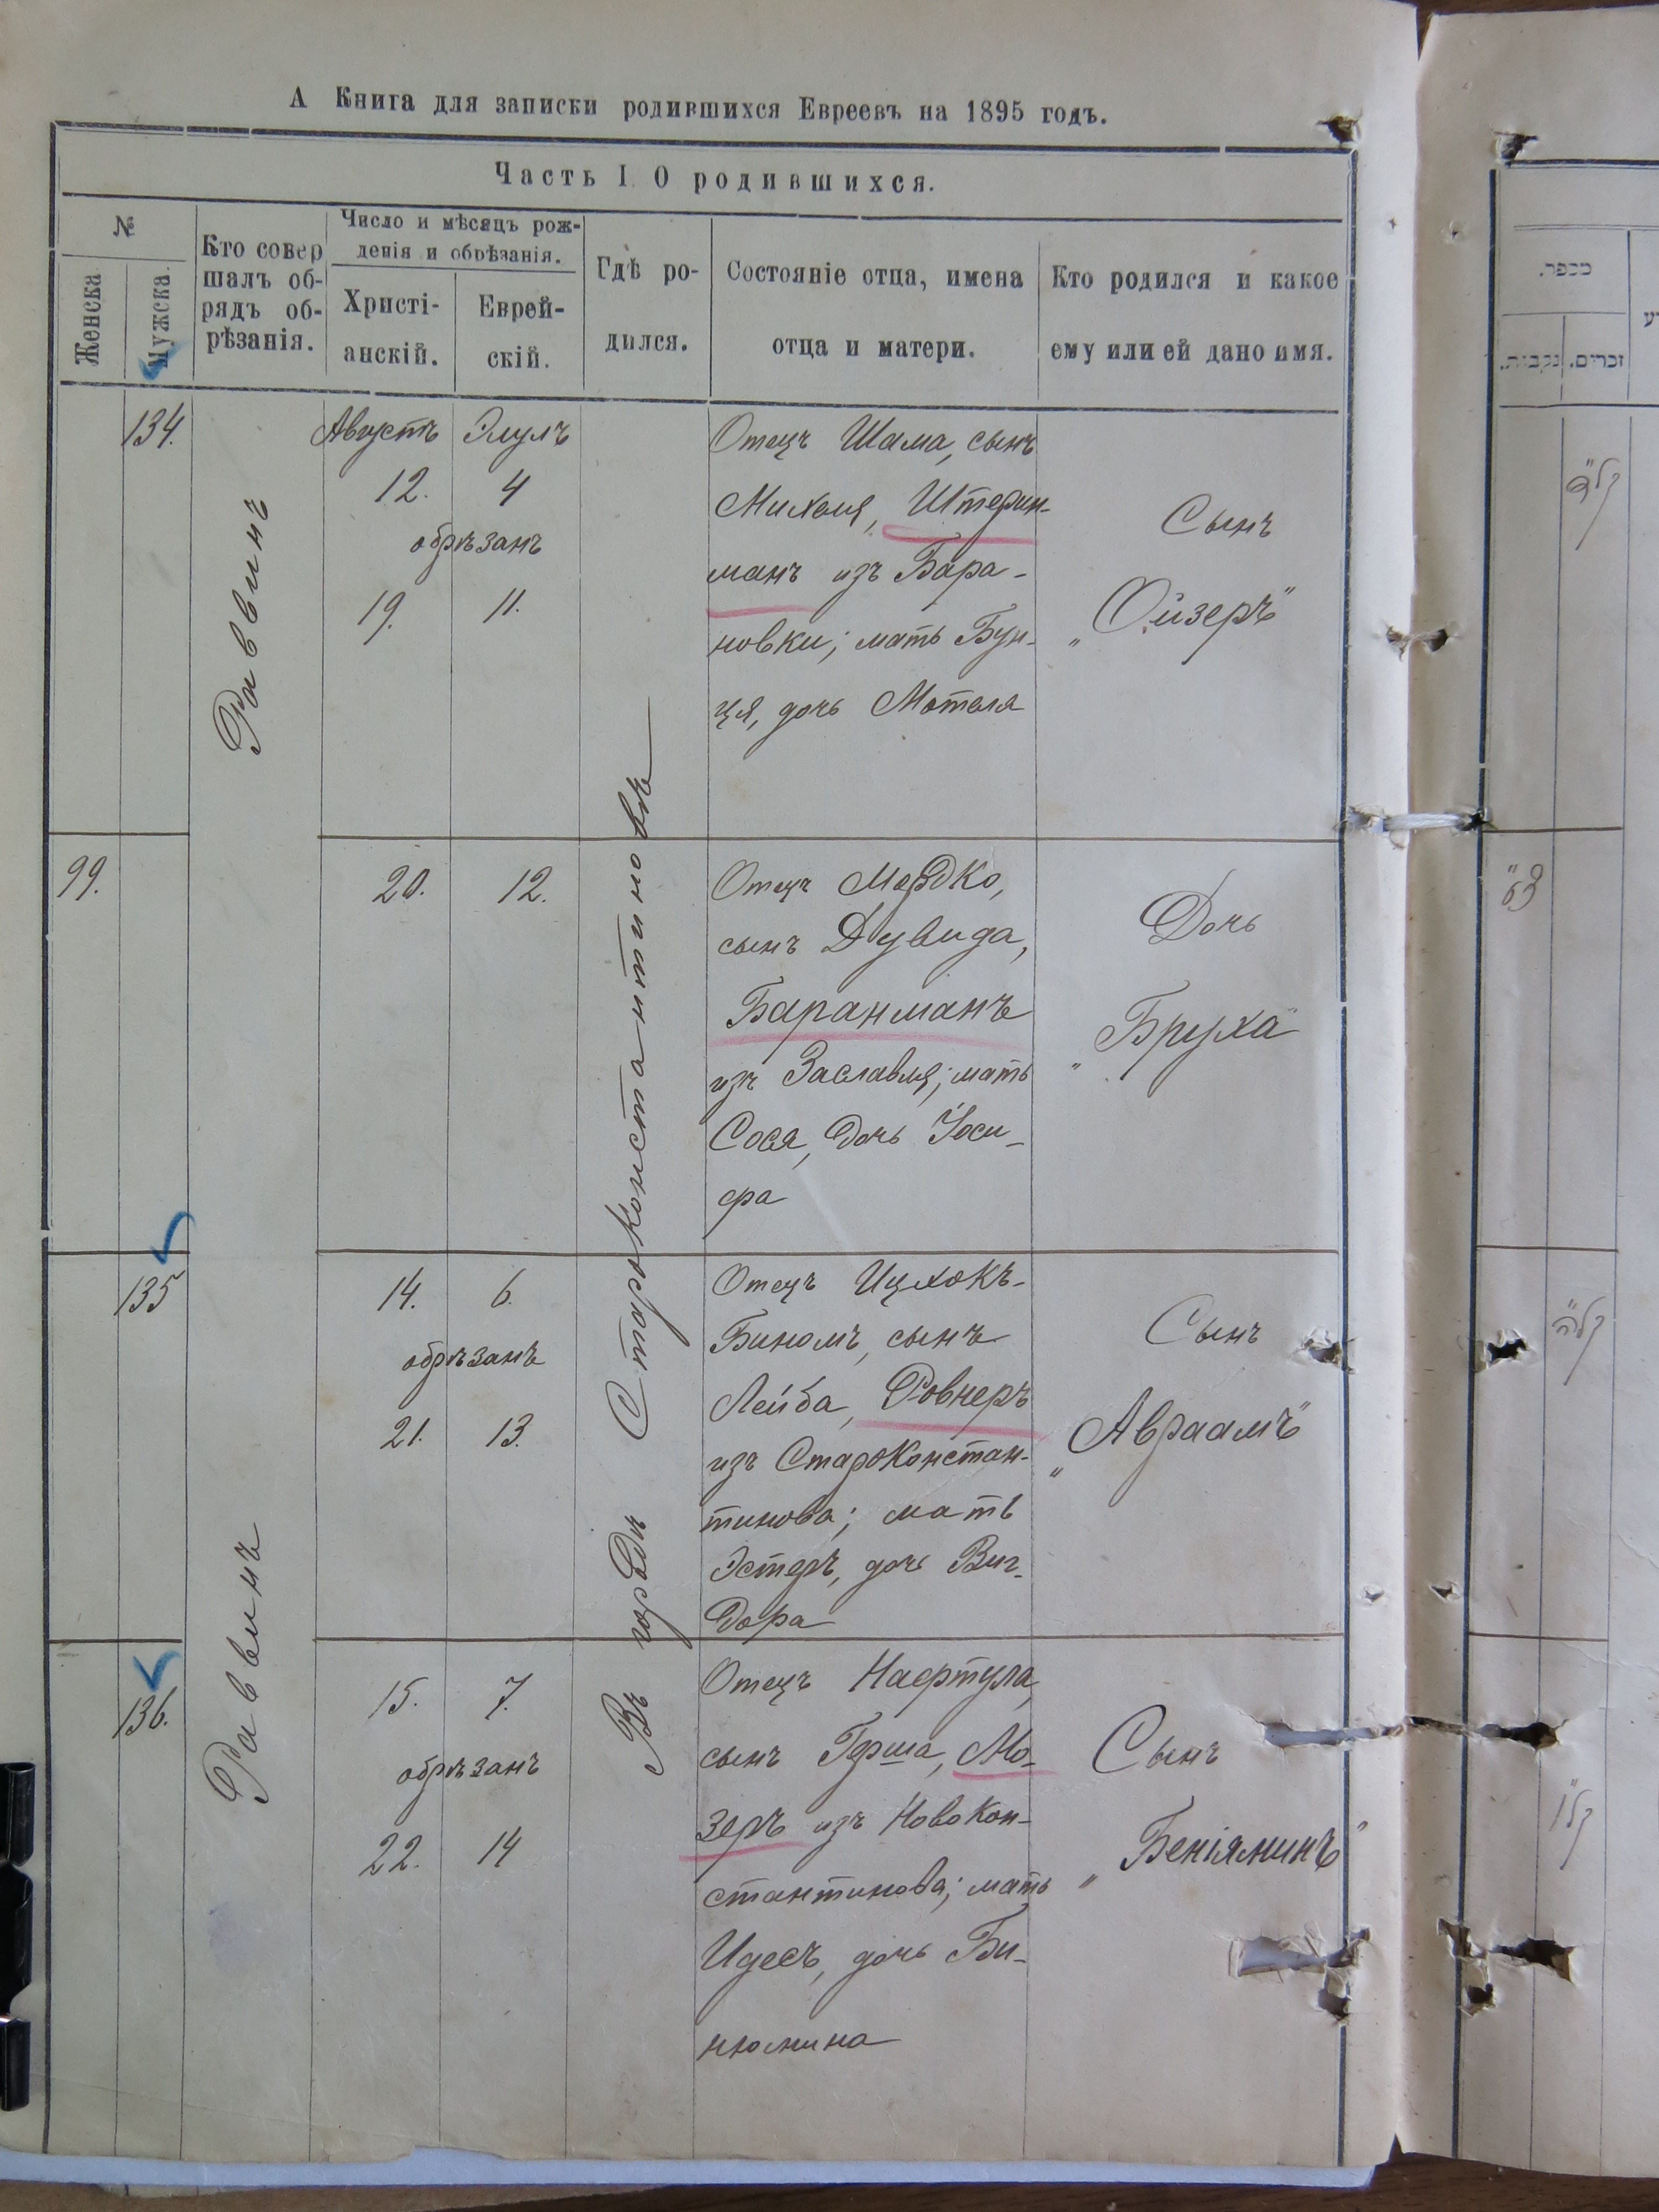 А Книга для записки родившихся Евреевъ на 1895 годъ.
Часть I О родившихся.
№
Женска
Мужска.
Кто совер
шалъ об-
рядъ об-
рѣзанія.
Число и мѣсяцъ рож-
денія и обрѣзанія.
Христі-
анскій.
Еврей-
скій.
Гдѣ ро-
дился.
Состояніе отца, имена
отца и матери.
Кто родился и какое
ему или ей дано имя.
134.
Раввинъ
Августъ Элулъ
12. 4
обрѣзанъ
19. 11.
Въ городѣ Староконстантиновѣ
Отецъ Шама, сынъ
Михеля, Штерин-
манъ изъ Бара-
новки; мать Бун-
ця, дочь Мотеля
Сынъ
„Ойзеръ"
99.
20. 12.
Отецъ Мордко,
сынъ Дувида,
Баранманъ
изъ Заславля; мать
Сося, дочь Иоси-
фа
Дочь
„Бруха"
135
Раввинъ
14. 6.
обрѣзанъ
21. 13.
Отецъ Ицхокъ-
Биномъ, сынъ
Лейба, Ровнеръ
изъ Староконстан-
тинова; мать
Эстеръ, дочь Виг-
дора
Сынъ
„Авраамъ"
136.
15. 7.
обрѣзанъ
22. 14
Отецъ Нафтула,
сынъ Герша, Мо-
зеръ изъ Новокон-
стантинова; мать
Идесъ, дочь Би-
нюмина
Сынъ
„Беніяминъ"
מספר.
נקבות.
זכרים.
קל"ד
צ"ט
קל"ה
קל"ו